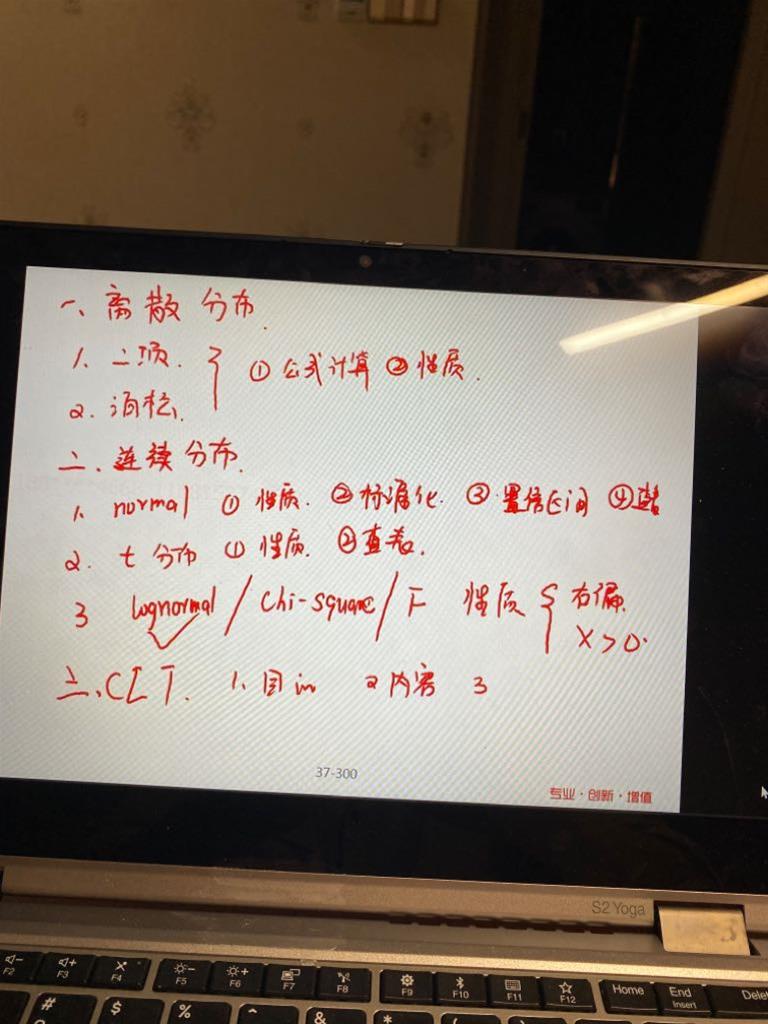 一、离散分布.
1. 二项.
① 公式计算 ② 性质.
2. 泊松.
二、连续分布.
1. normal ① 性质. ② 标准化. ③ 置信区间 ④
2. t 分布 ① 性质. ② 查表.
3 lognormal / chi-square / F 性质 { 右偏. X > 0.
三、CLT. 1. 2 内容 3
37-300
专业·创新·增值
S2 Yoga
F2 F3 F4 F5 F6 F7 F8 F9 F10 F11 F12 Home End Insert Delet
# $ % ^ & *